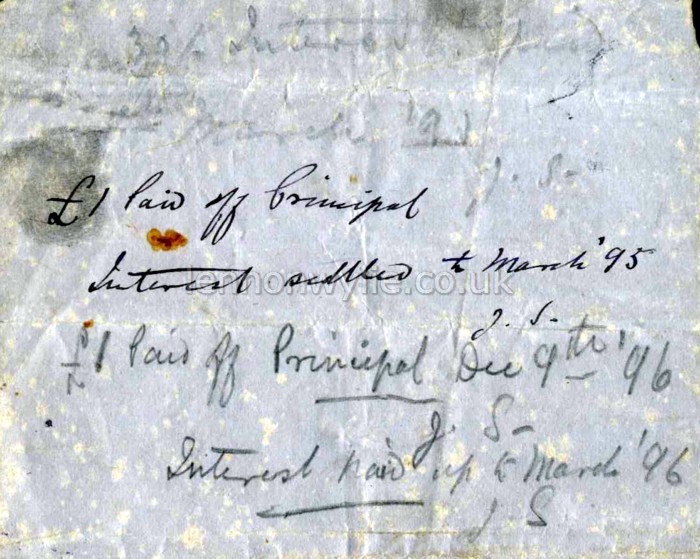 30/- Interest paid
March '93
J. S-
£1 Paid off Principal
Interest settled to March '95
J. S-
£1 Paid off Principal Dec 9th '96
J. S-
Interest paid up to March '96
J S
lennonwylie.co.uk